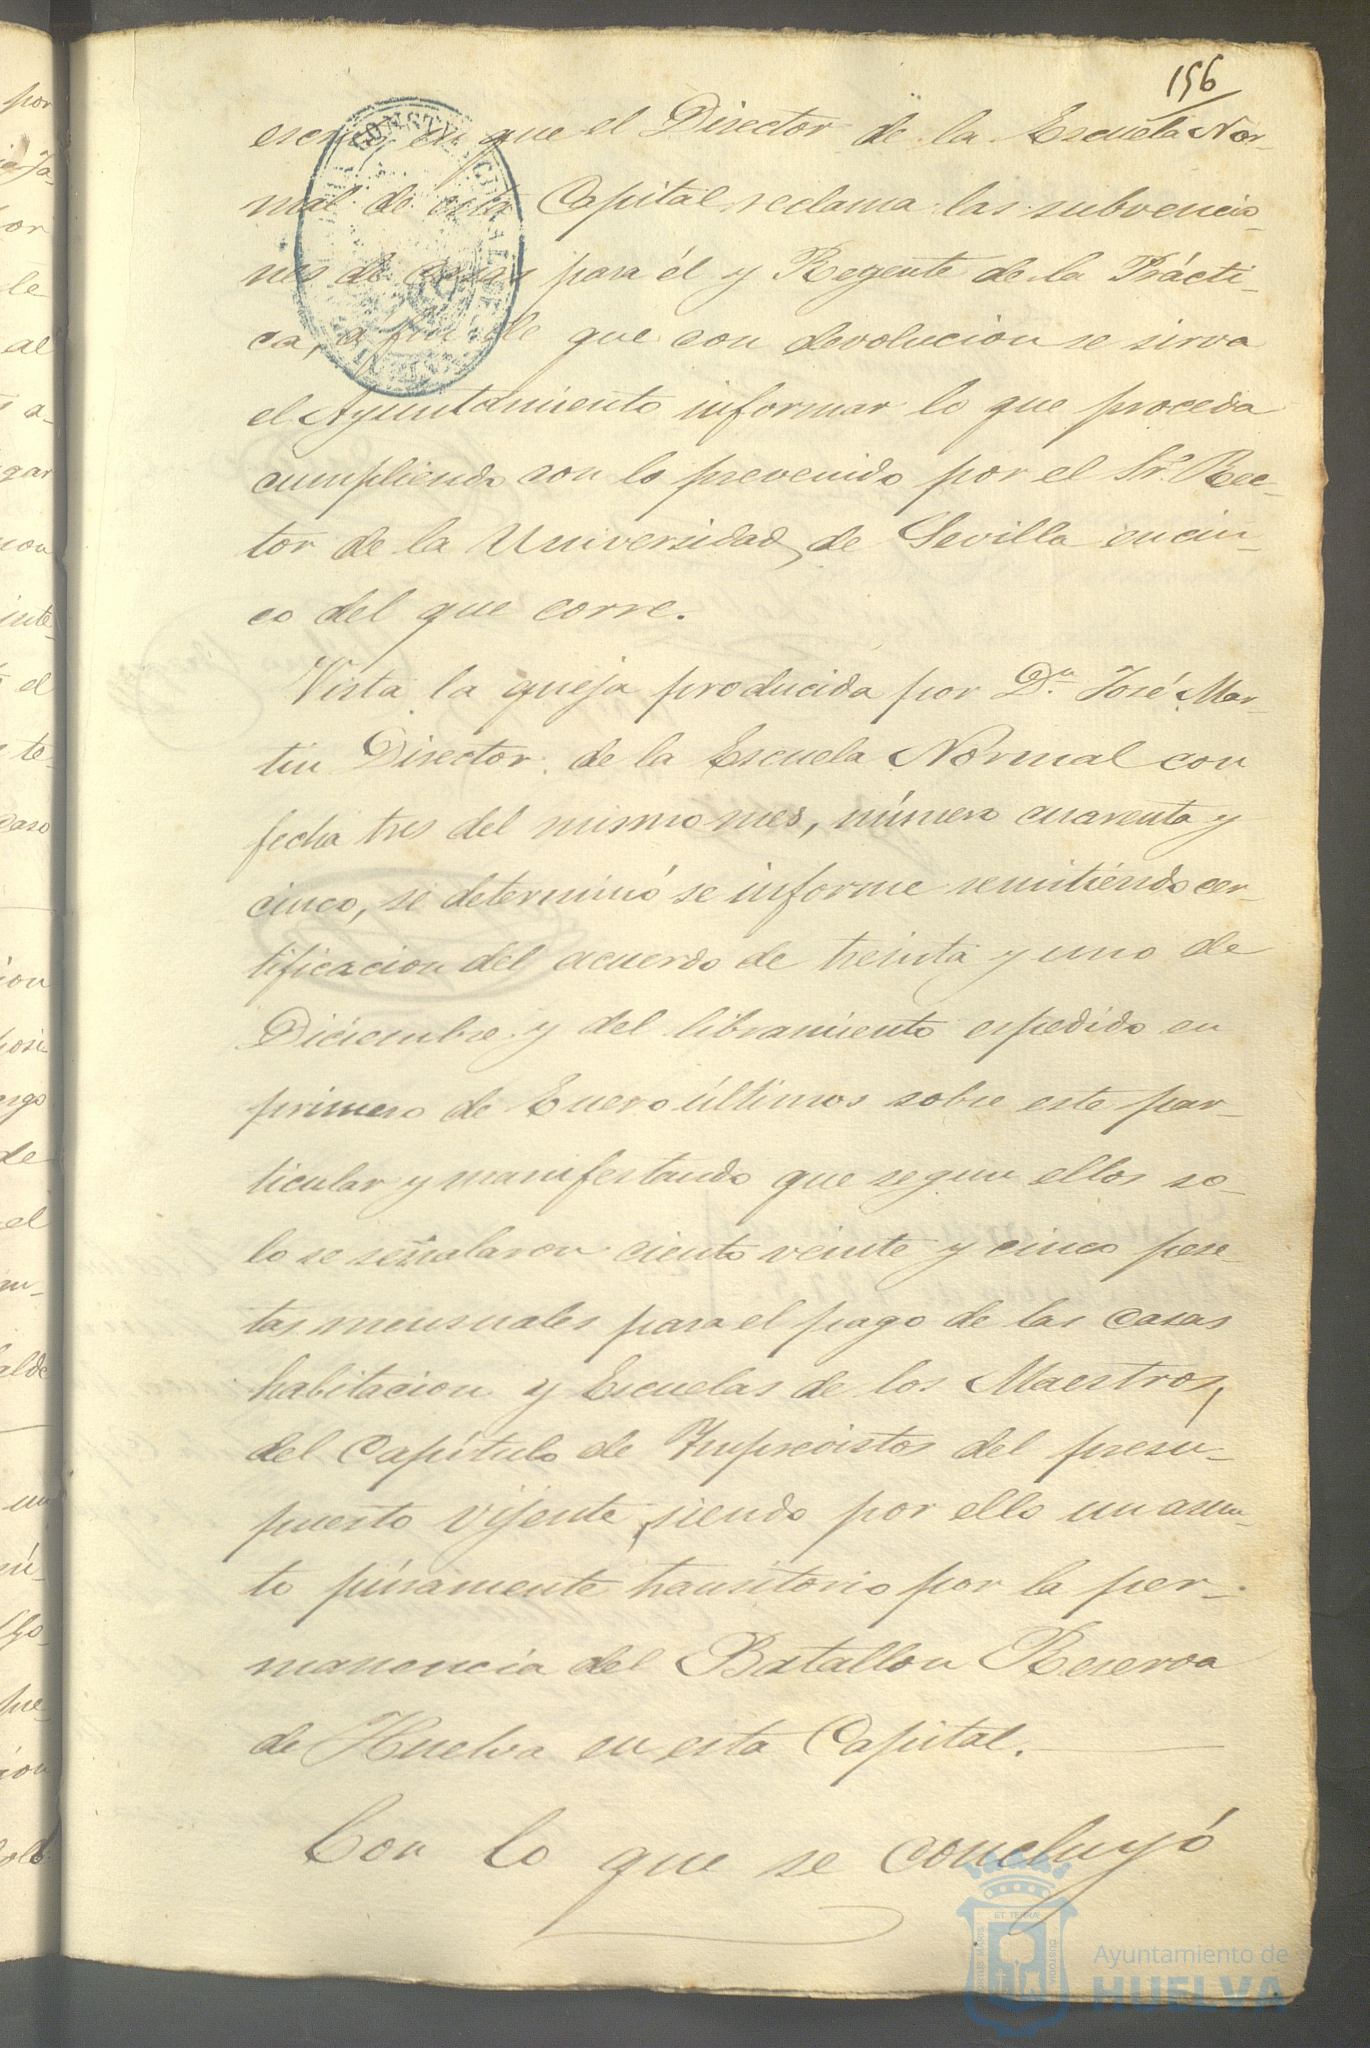 156
escrito, en que el Director de la Escuela Nor-
mal de esta Capital reclama las subvencio-
nes de casas para él y Regente de la Prácti-
ca, a fin de que con devolucion se sirva
el Ayuntamiento informar lo que proceda
cumpliendo con lo prevenido por el Sr. Rec-
tor de la Universidad de Sevilla en cin-
co del que corre.
Vista la queja producida por Dn. José Mar-
tin Director de la Escuela Normal con
fecha tres del mismo mes, número cuarenta y
cinco, se determinó se informe remitiendo cer-
tificacion del acuerdo de treinta y uno de
Diciembre y del libramiento espedido en
primero de Enero últimos sobre este par-
ticular y manifestando que segun ellos so-
lo se señalaron ciento veinte y cinco pese-
tas mensuales para el pago de las casas
habitacion y Escuelas de los Maestros,
del Capítulo de Imprevistos del presu-
puesto vijente, siendo por ello un asun-
to púramente transitorio por la per-
manencia del Batallon Reserva
de Huelva en esta Capital.
Con lo que se concluyó
Ayuntamiento de
HUELVA